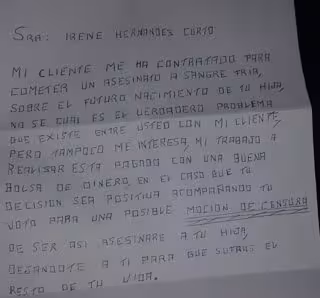 SRA: IRENE HERNANDES CURTO
MI CLIENTE ME HA CONTRATADO PARA
COMETER UN ASESINATO A SANGRE FRIA,
SOBRE EL FUTURO NACIMIENTO DE TU HIJA,
NO SE CUAL ES EL VERDADERO PROBLEMA
QUE EXISTE ENTRE USTED CON MI CLIENTE,
PERO TAMPOCO ME INTERESA, MI TRABAJO A
REALISAR ESTA PAGADO CON UNA BUENA
BOLSA DE DINERO, EN EL CASO QUE TU
DECISION SEA POSITIVA ACOMPAÑANDO TU
VOTO PARA UNA POSIBLE MOCION DE CENSURA
DE SER ASI ASESINARE A TU HIJA,
DEJANDOTE A TI PARA QUE SUFRAS EL
RESTO DE TU VIDA.